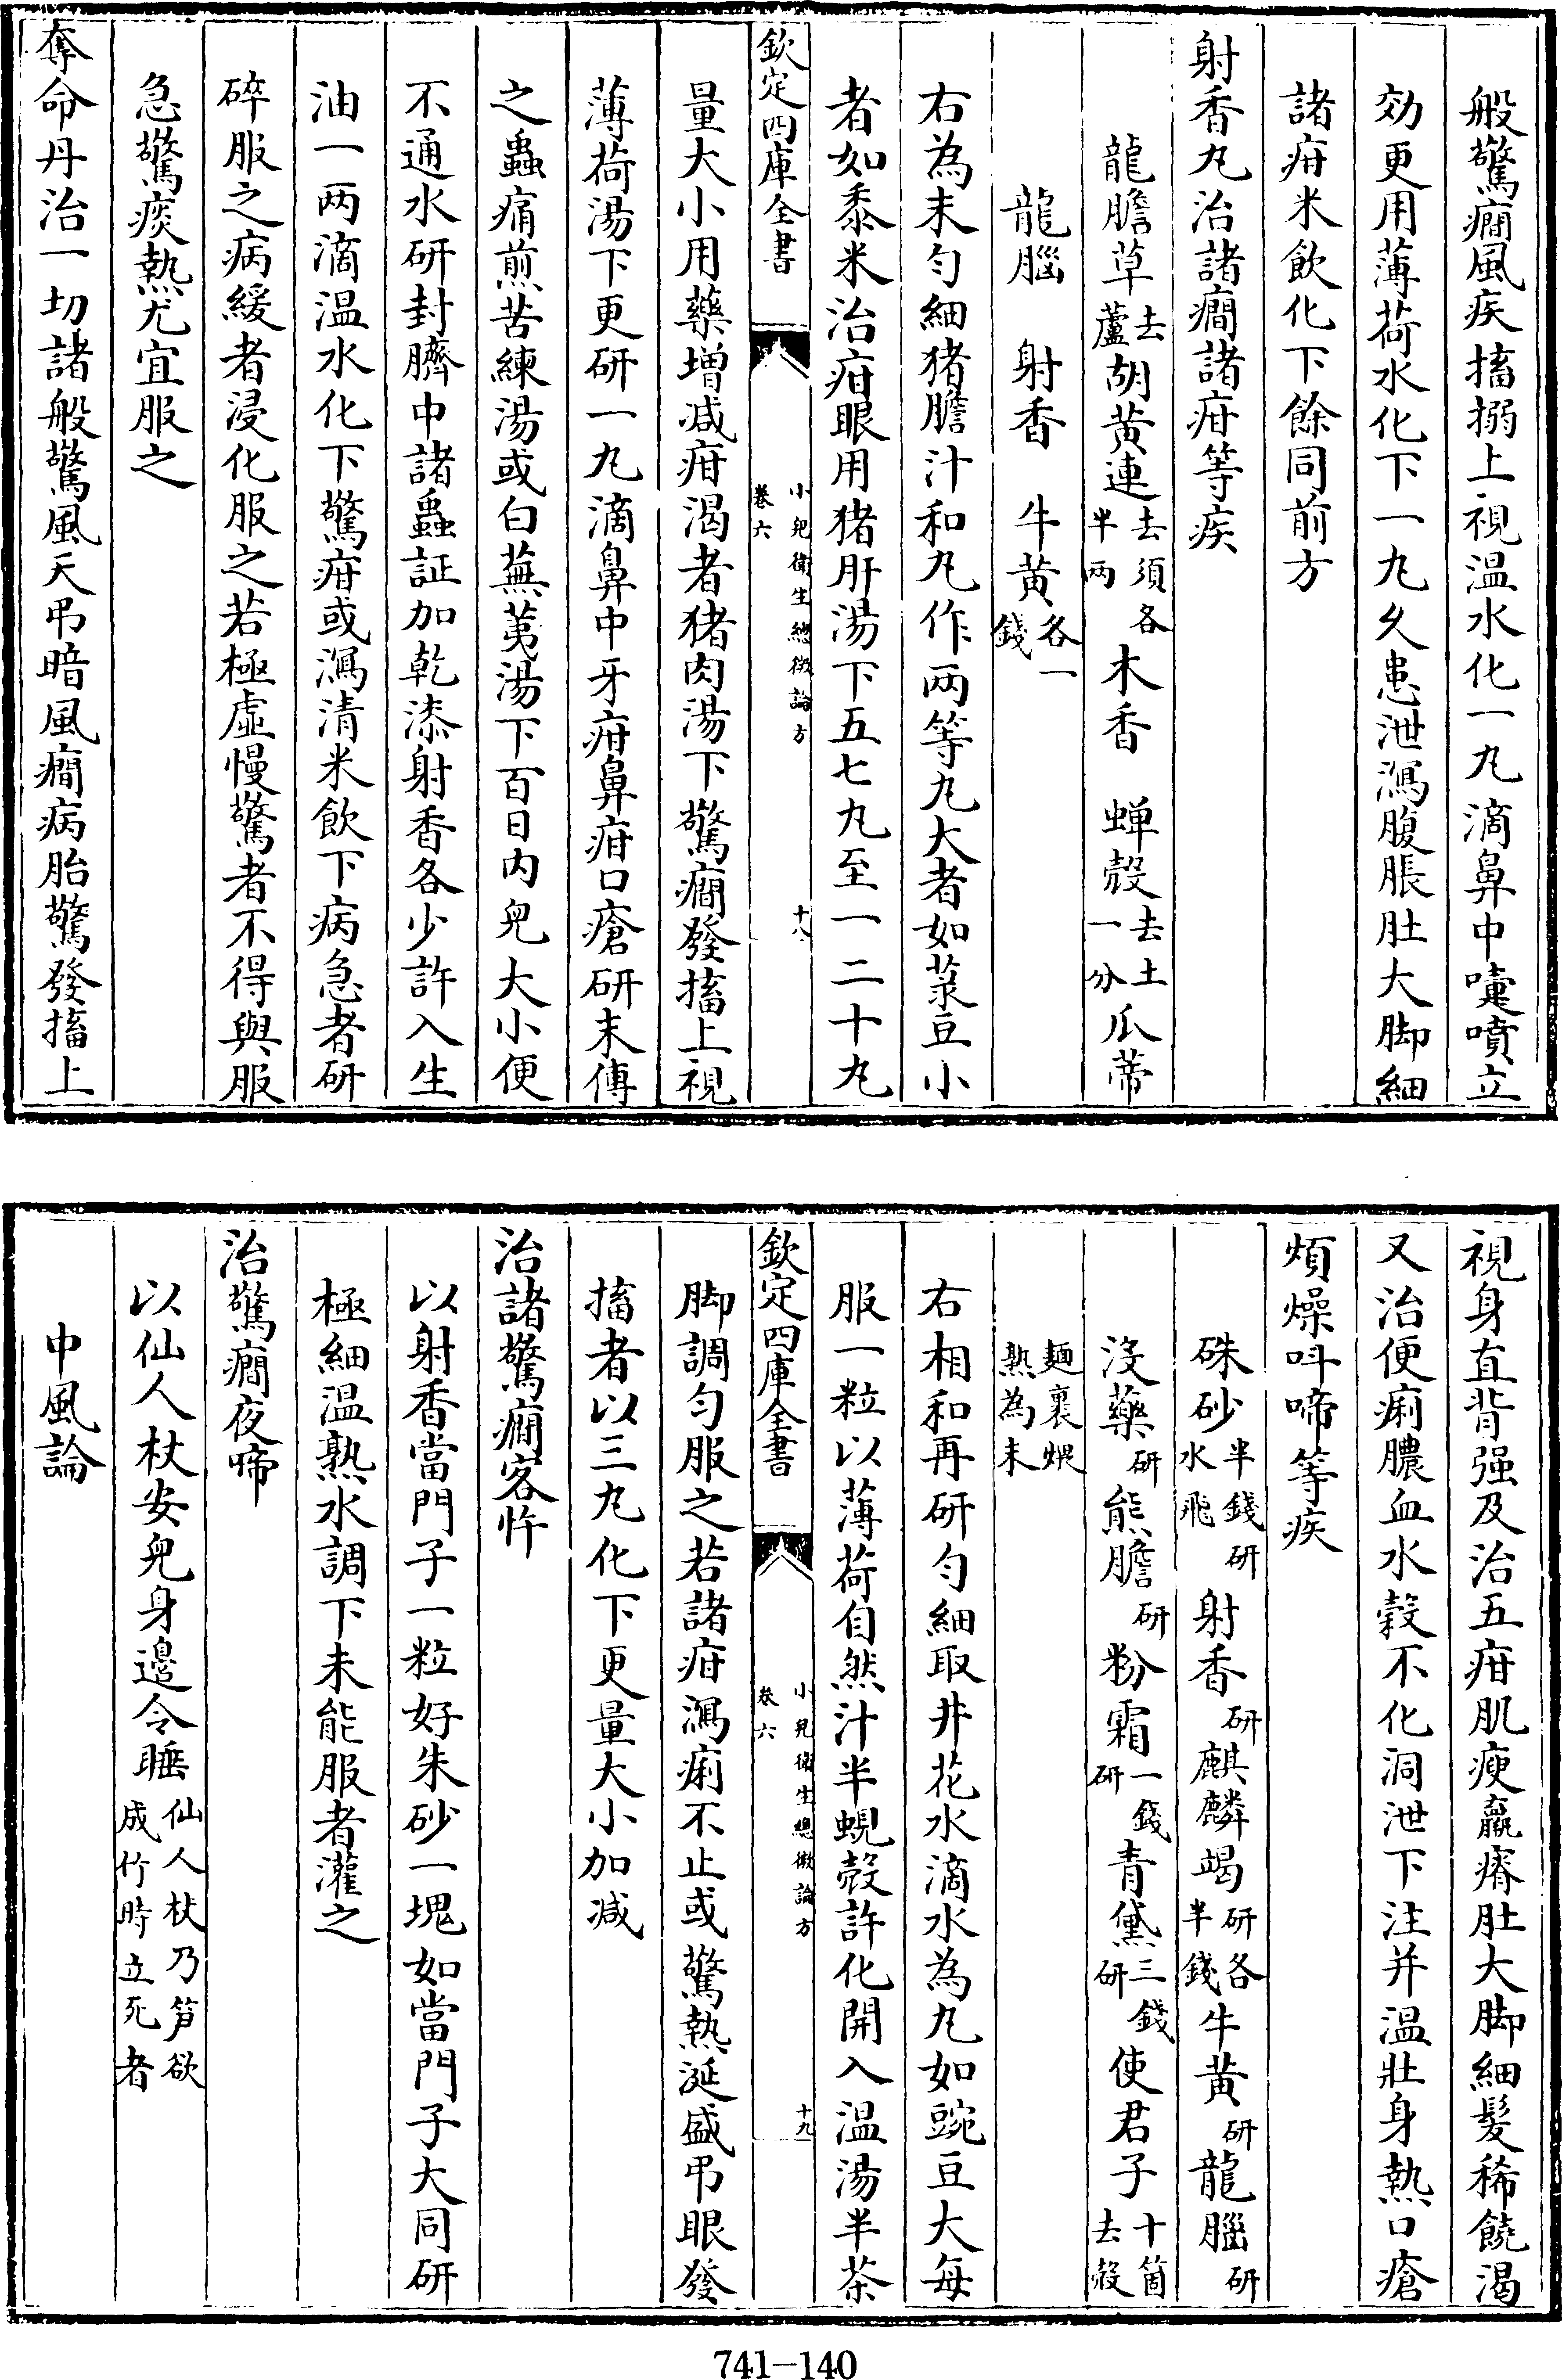 般驚癇風疾搐搦上視温水化一丸滴鼻中嚏噴立
効更用薄荷水化下一丸久患泄瀉腹脹肚大脚細
諸疳米飲化下餘同前方
射香丸治諸癇諸疳等疾
龍膽草去蘆胡黄連去須各半兩木香 蟬殻去土一分瓜蒂
龍腦 射香 牛黄各一錢
右為末匀細猪膽汁和丸作兩等丸大者如菉豆小
者如黍米治疳眼用猪肝湯下五七丸至一二十丸
欽定四庫全書
小兒衛生總微論方
卷六
十八
量大小用藥增减疳渴者猪肉湯下驚癇發搐上視
薄荷湯下更研一丸滴鼻中牙疳鼻疳口瘡研末傅
之蟲痛煎苦練湯或白蕪荑湯下百日内兒大小便
不通水研封臍中諸蟲証加乾漆射香各少許入生
油一兩滴温水化下驚疳或瀉清米飲下病急者研
碎服之病緩者浸化服之若極虛慢驚者不得與服
急驚痰熱尤宜服之
奪命丹治一切諸般驚風天吊暗風癇病胎驚發搐上
視身直背强及治五疳肌瘦羸瘠肚大脚細髮稀饒渴
又治便痢膿血水穀不化洞泄下注并温壯身熱口瘡
煩燥呌啼等疾
硃砂半錢研水飛射香研麒麟竭研各半錢牛黄研龍腦研
没藥研熊膽研粉霜一錢研青黛三錢研使君子十箇去殻
麵裹煨熟為末
右相和再研匀細取井花水滴水為丸如豌豆大每
服一粒以薄荷自然汁半蜆殻許化開入温湯半茶
欽定四庫全書
小兒衛生總微論方
卷六
十九
脚調匀服之若諸疳瀉痢不止或驚熱涎盛吊眼發
搐者以三丸化下更量大小加减
治諸驚癇客忤
以射香當門子一粒好朱砂一塊如當門子大同研
極細温熟水調下未能服者灌之
治驚癇夜啼
以仙人杖安兒身邊令睡仙人杖乃笋欲成竹時立死者
中風論
741-140